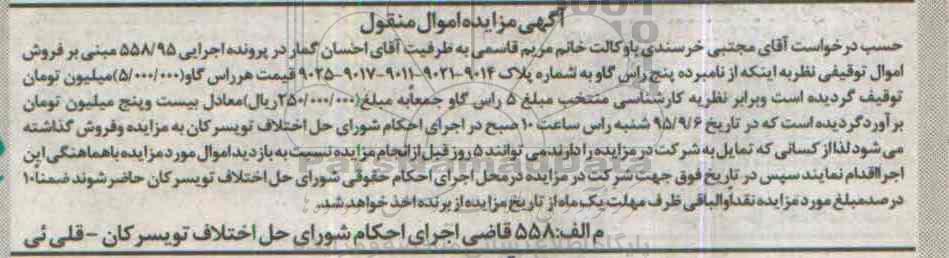 آگهی مزایده اموال منقول
حسب درخواست آقای مجتبی خرسندی باوکالت خانم مریم قاسمی به طرفیت آقای احسان گمار در پرونده اجرایی ۵۵۸/۹۵ مبنی بر فروش
اموال توقیفی نظربه اینکه از نامبرده پنج راس گاو به شماره پلاک ۹۰۱۴-۹۰۲۱-۹۰۱۱-۹۰۱۷-۹۰۲۵ قیمت هرراس گاو(۵/۰۰۰/۰۰۰)میلیون تومان
توقیف گردیده است وبرابر نظریه کارشناسی منتخب مبلغ ۵ راس گاو جمعاًبه مبلغ(۲۵۰/۰۰۰/۰۰۰ریال)معادل بیست وپنج میلیون تومان
برآوردگردیده است که در تاریخ ۹۵/۹/۶ شنبه راس ساعت ۱۰ صبح در اجرای احکام شورای حل اختلاف تویسرکان به مزایده وفروش گذاشته
می شودلذااز کسانی که تمایل به شرکت در مزایده را دارند می توانند ۵ روز قبل از انجام مزایده نسبت به بازدید اموال مورد مزایده باهماهنگی این
اجرااقدام نمایند سپس در تاریخ فوق جهت شرکت در مزایده در محل اجرای احکام حقوقی شورای حل اختلاف تویسرکان حاضر شوند ضمنا۱۰
درصدمبلغ مورد مزایده نقداًوالباقی ظرف مهلت یک ماه از تاریخ مزایده از برنده اخذ خواهد شد.
م الف:۵۵۸ قاضی اجرای احکام شورای حل اختلاف تویسرکان -قلی ئی